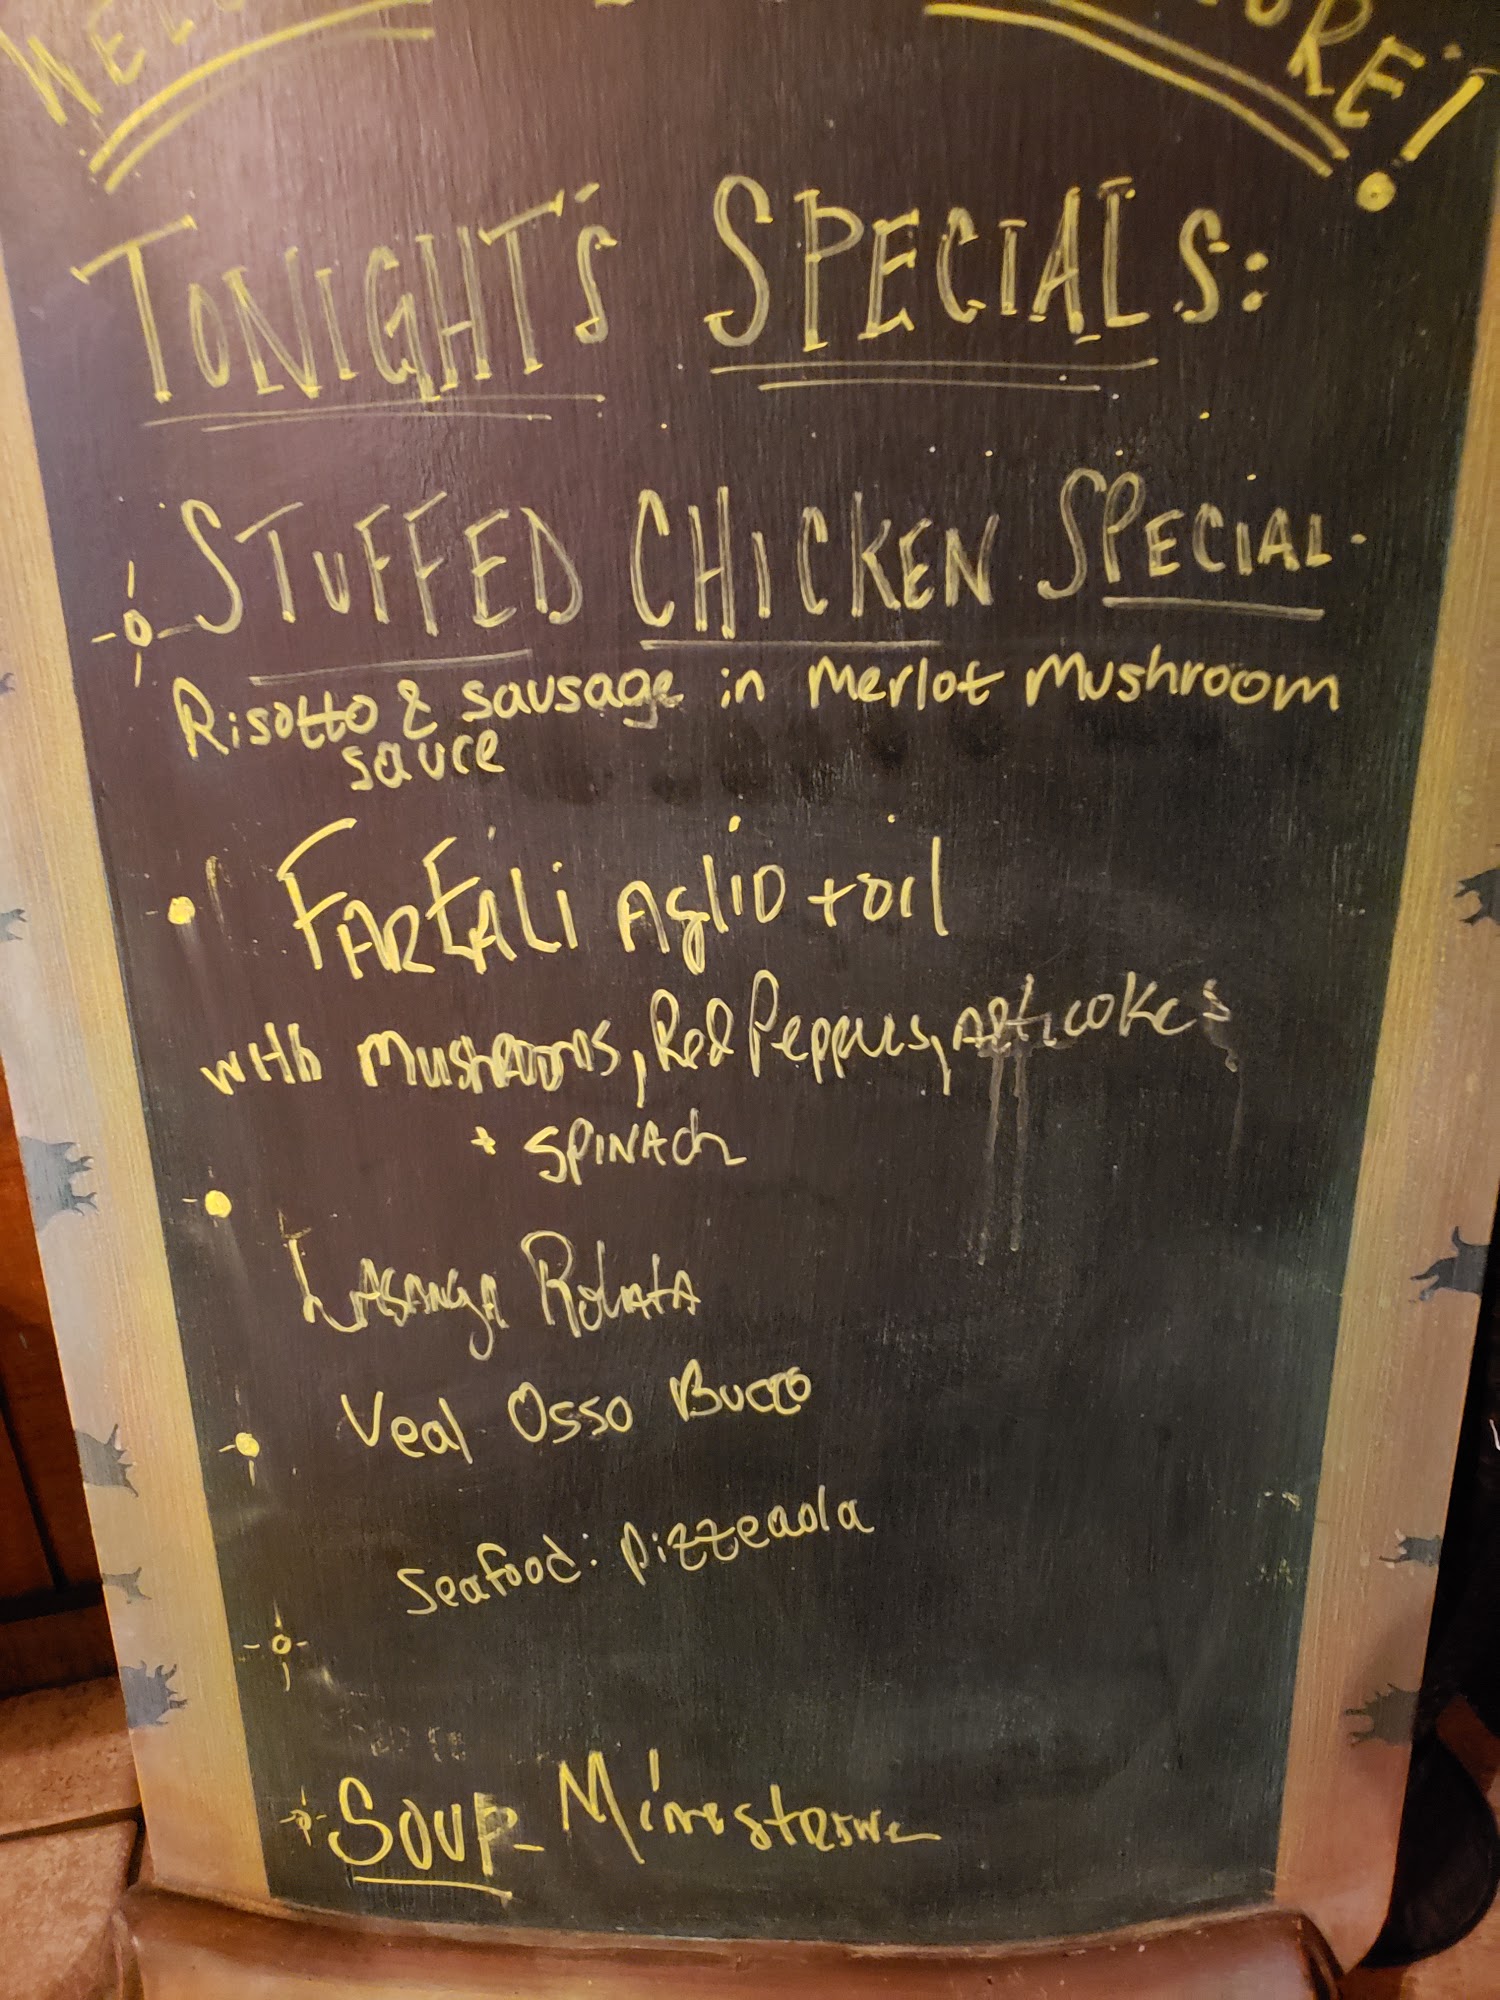 TONIGHT'S SPECIALS:
STUFFED CHICKEN SPECIAL-
Risotto & sausage in Merlot Mushroom
sauce
FARFALi Aglio + oil
with MushRooms, Red Peppers, ARTicokes
+ SPINACh
LASANGA ROlATA
Veal Osso Bucco
Seafood: pizzeaola
SOUP- Minestrone